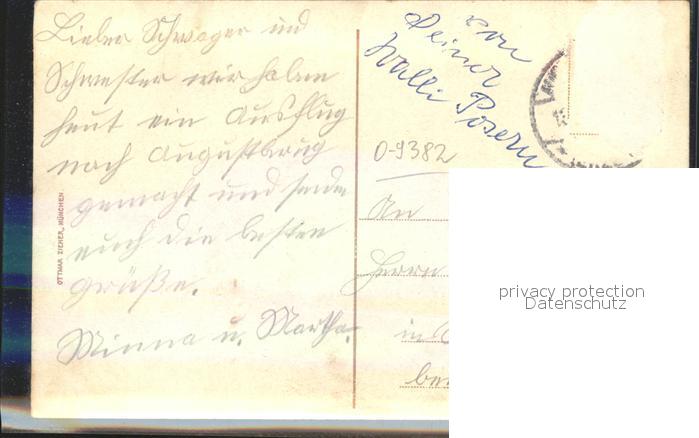 Lieber Schwager und
Schwester wir haben
heut ein Ausflug
nach Augustusbrug
gemacht und senden
euch die besten
grüße.
Minna u. Martha.
OTTMAR ZIEHER, MÜNCHEN
von
Deiner
Walli Posern
0-9382
An
Herrn
in
bei
privacy protection
Datenschutz